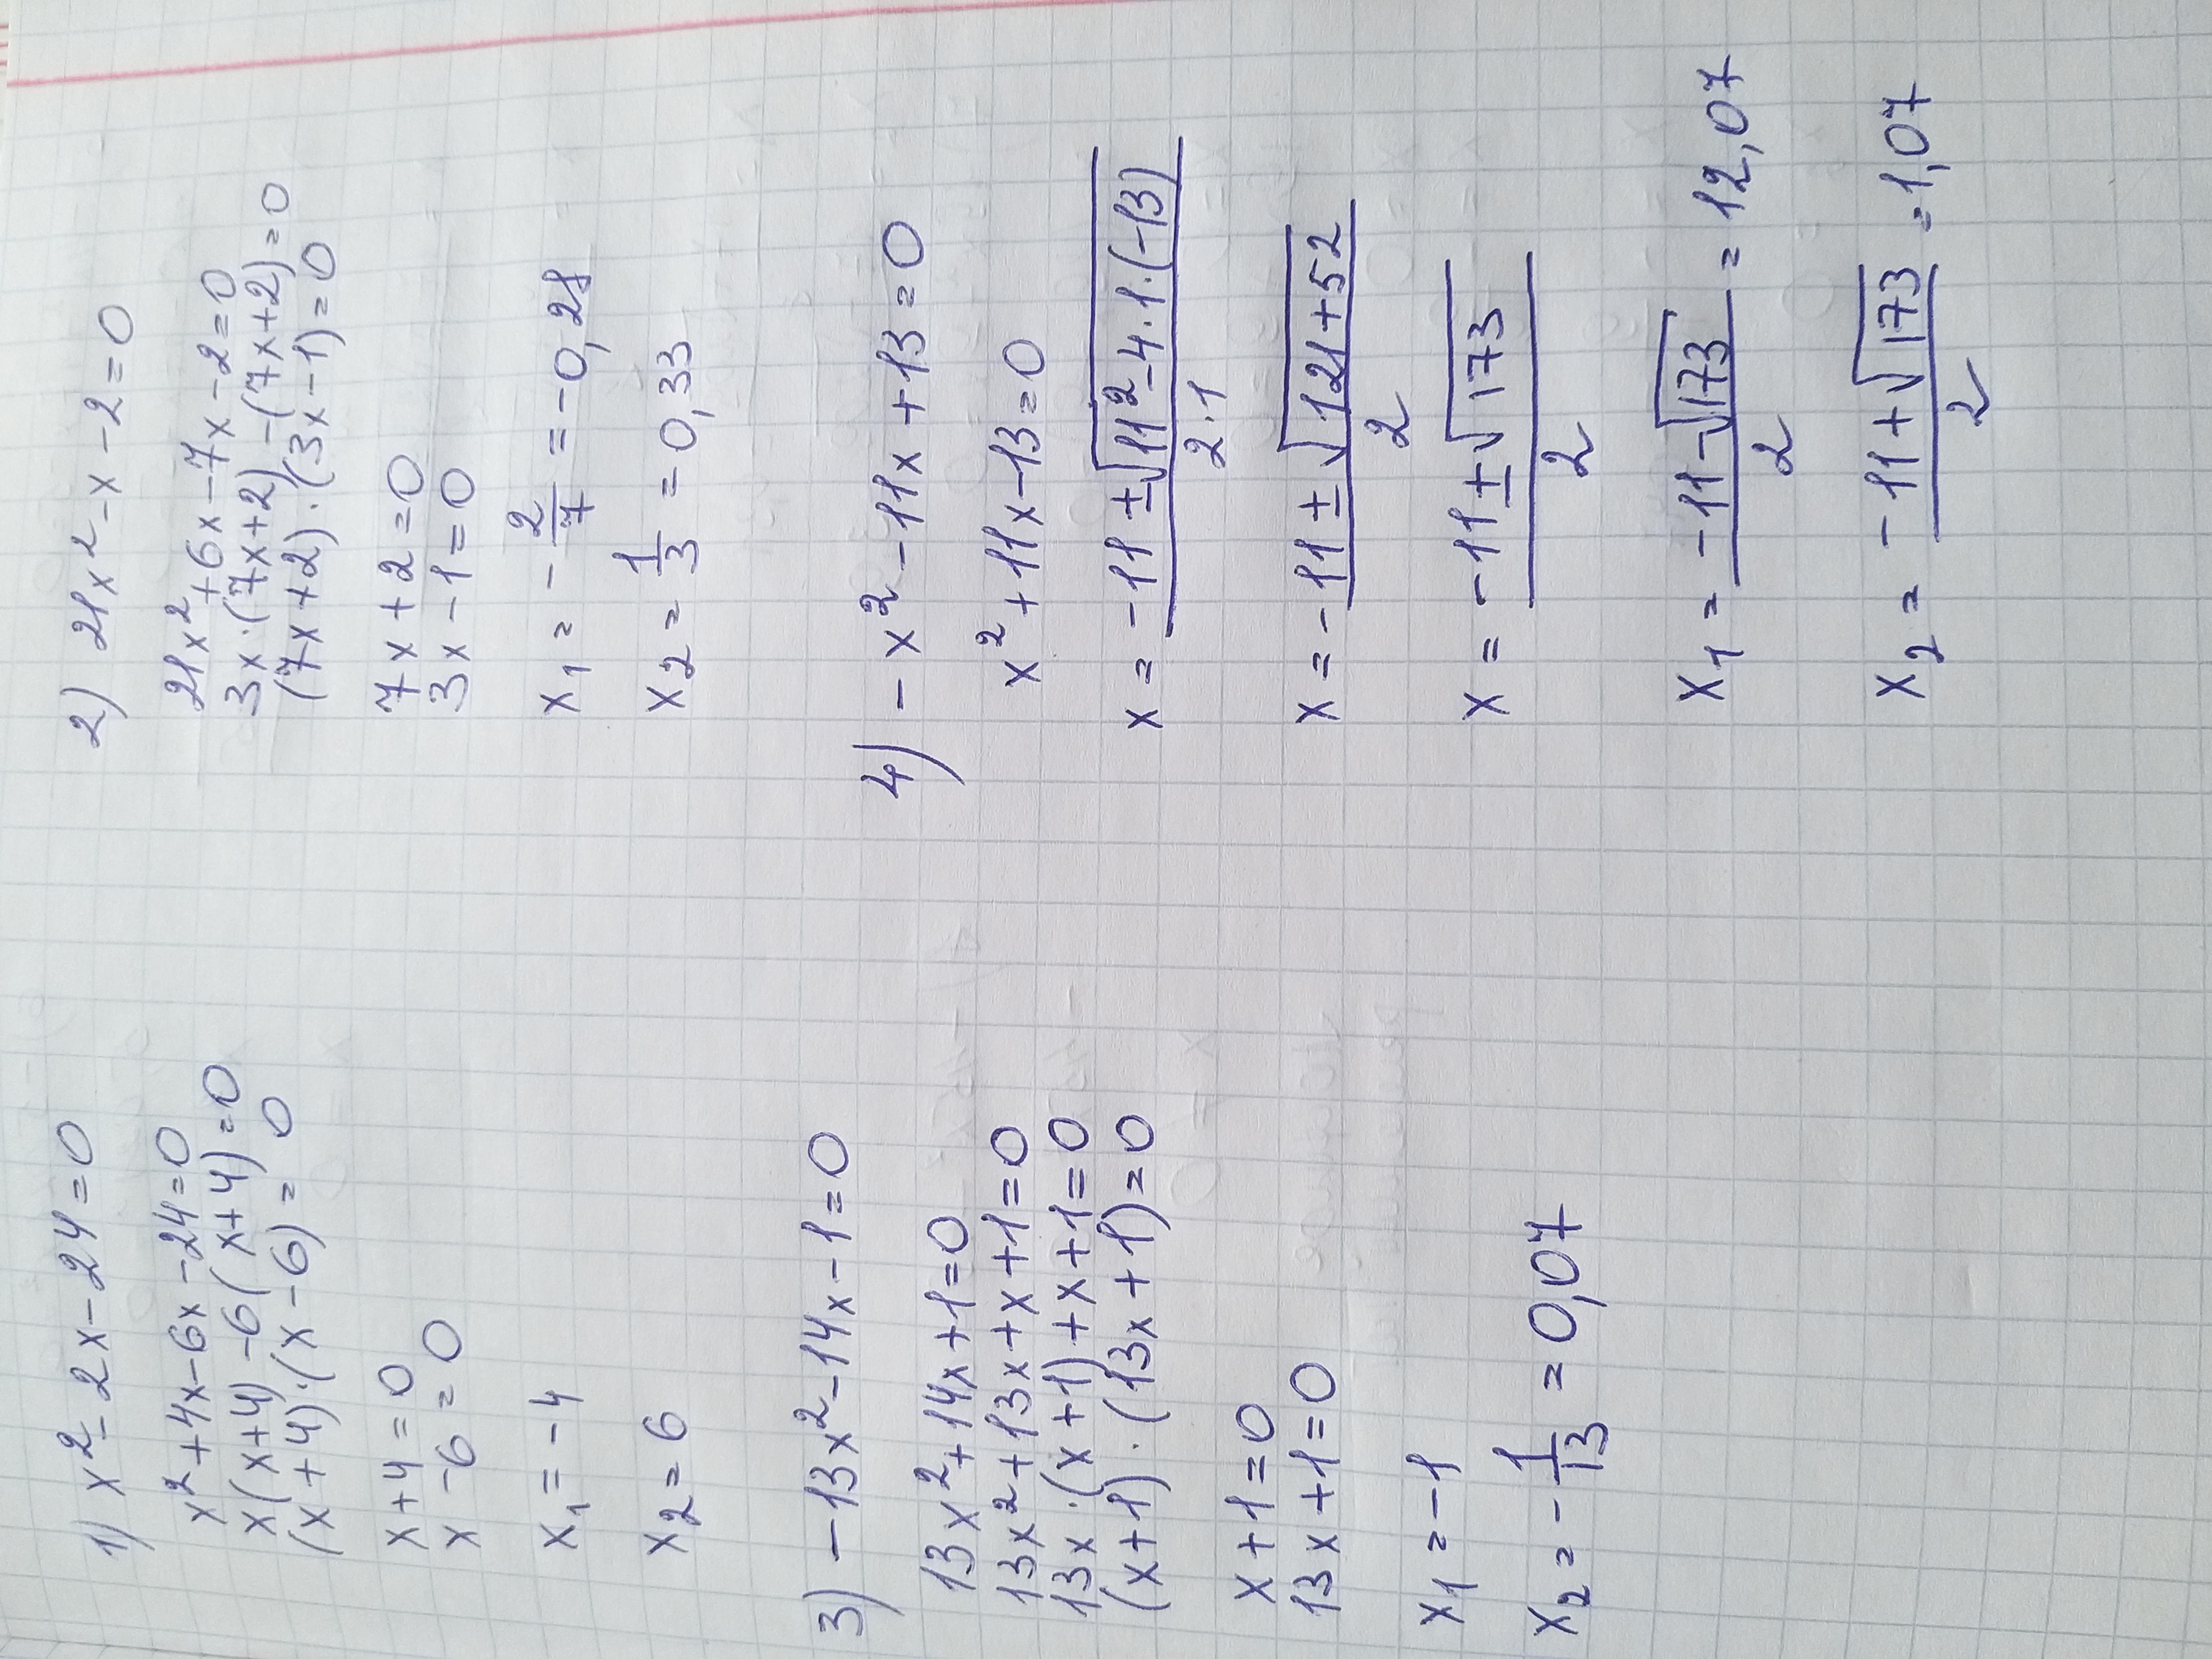 1) x² - 2x - 24 = 0
x² + 4x - 6x - 24 = 0
x(x+4) - 6(x+4) = 0
(x+4)·(x-6) = 0
x + 4 = 0
x - 6 = 0
x₁ = -4
x₂ = 6
2) 21x² - x - 2 = 0
21x² + 6x - 7x - 2 = 0
3x·(7x+2) - (7x+2) = 0
(7x+2)·(3x-1) = 0
7x + 2 = 0
3x - 1 = 0
x₁ = -2/7 = -0,28
x₂ = 1/3 = 0,33
3) -13x² - 14x - 1 = 0
13x² + 14x + 1 = 0
13x² + 13x + x + 1 = 0
13x·(x+1) + x + 1 = 0
(x+1)·(13x+1) = 0
x + 1 = 0
13x + 1 = 0
x₁ = -1
x₂ = -1/13 = 0,07
4) -x² - 11x + 13 = 0
x² + 11x - 13 = 0
x = (-11 ± √(11² - 4·1·(-13)))/(2·1)
x = (-11 ± √(121+52))/2
x = (-11 ± √173)/2
x₁ = (-11 - √173)/2 = 12,07
x₂ = (-11 + √173)/2 = 1,07